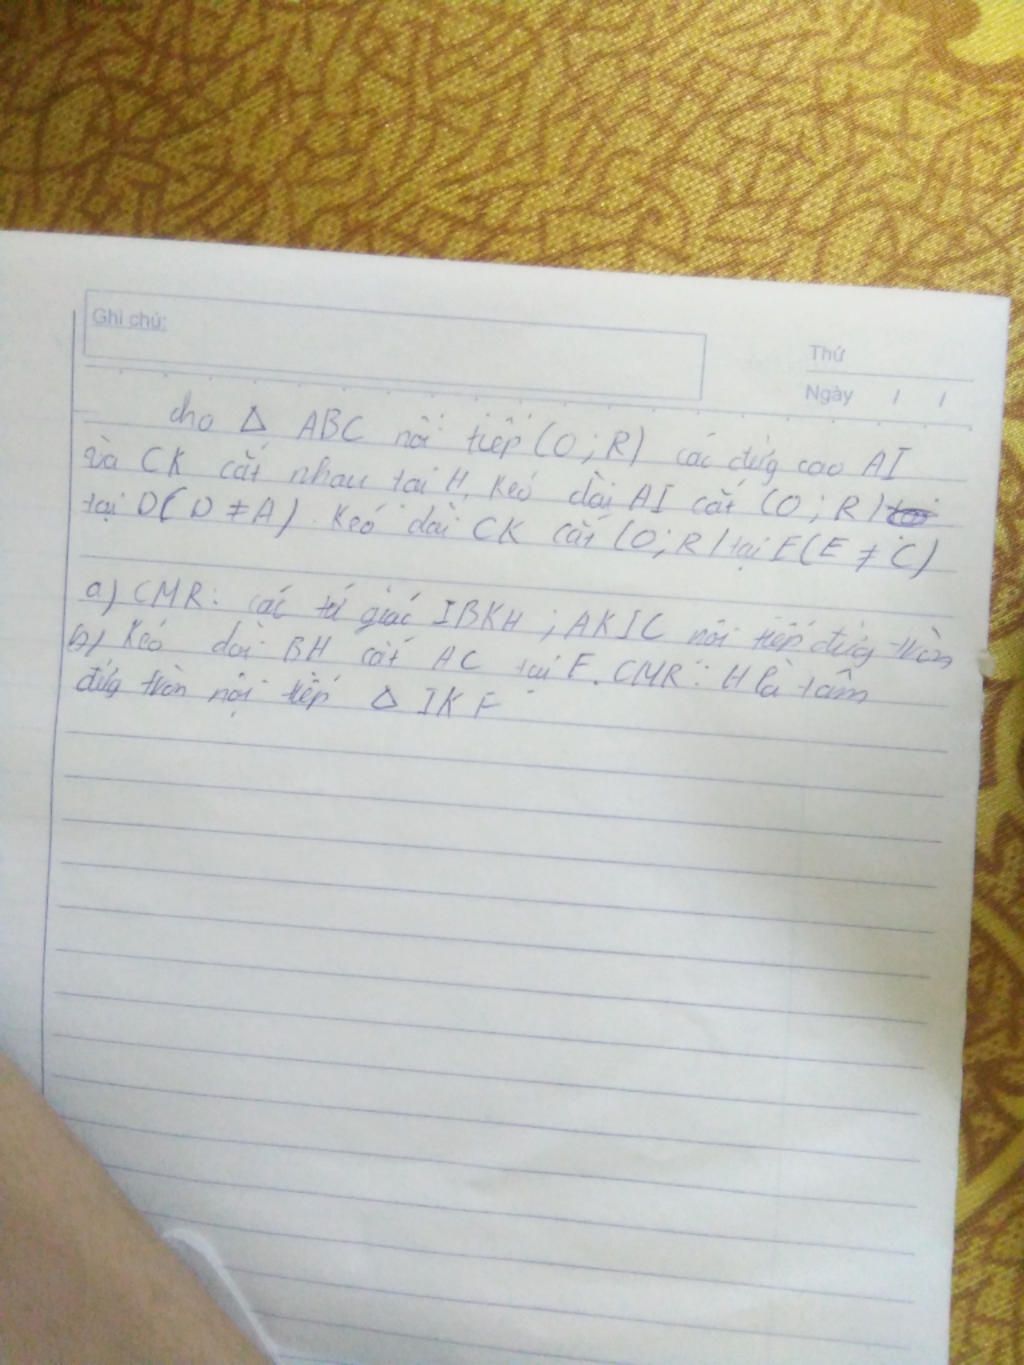 Ghi chú:
Thứ
Ngày / /
cho Δ ABC nội tiếp (O;R) các đừg cao AI
và CK cắt nhau tại H. Kéo dài AI cắt (O;R)
tại D(D ≠ A). Kéo dài CK cắt (O;R) tại E(E ≠ C)
a) CMR: các tứ giác IBKH ; AKIC nội tiếp đừg tròn
b) Kéo dài BH cắt AC tại F. CMR: H là tâm
đừg tròn nội tiếp Δ IKF